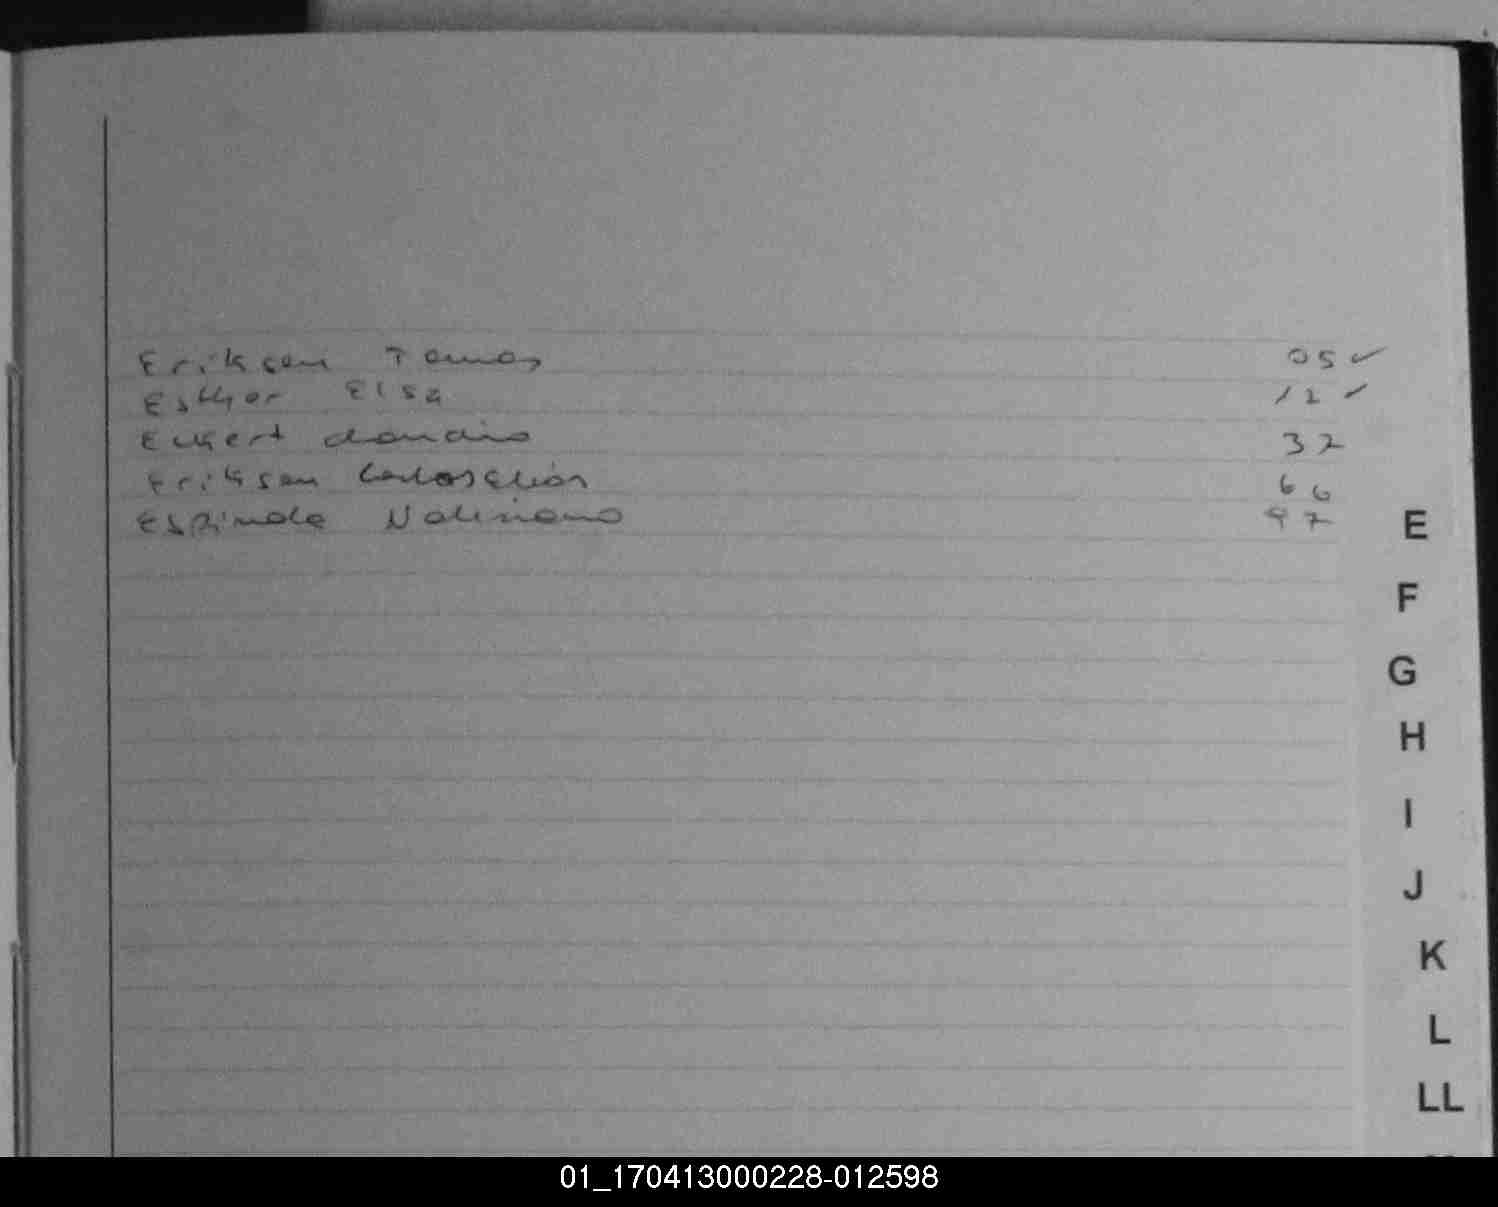 Eriksen Tomas 05 ✓
Esther Elsa 12 ✓
Eckert Claudio 37
Eriksen Carlos Elias 66
Espindola 97
E
F
G
H
I
J
K
L
LL
01_170413000228-012598